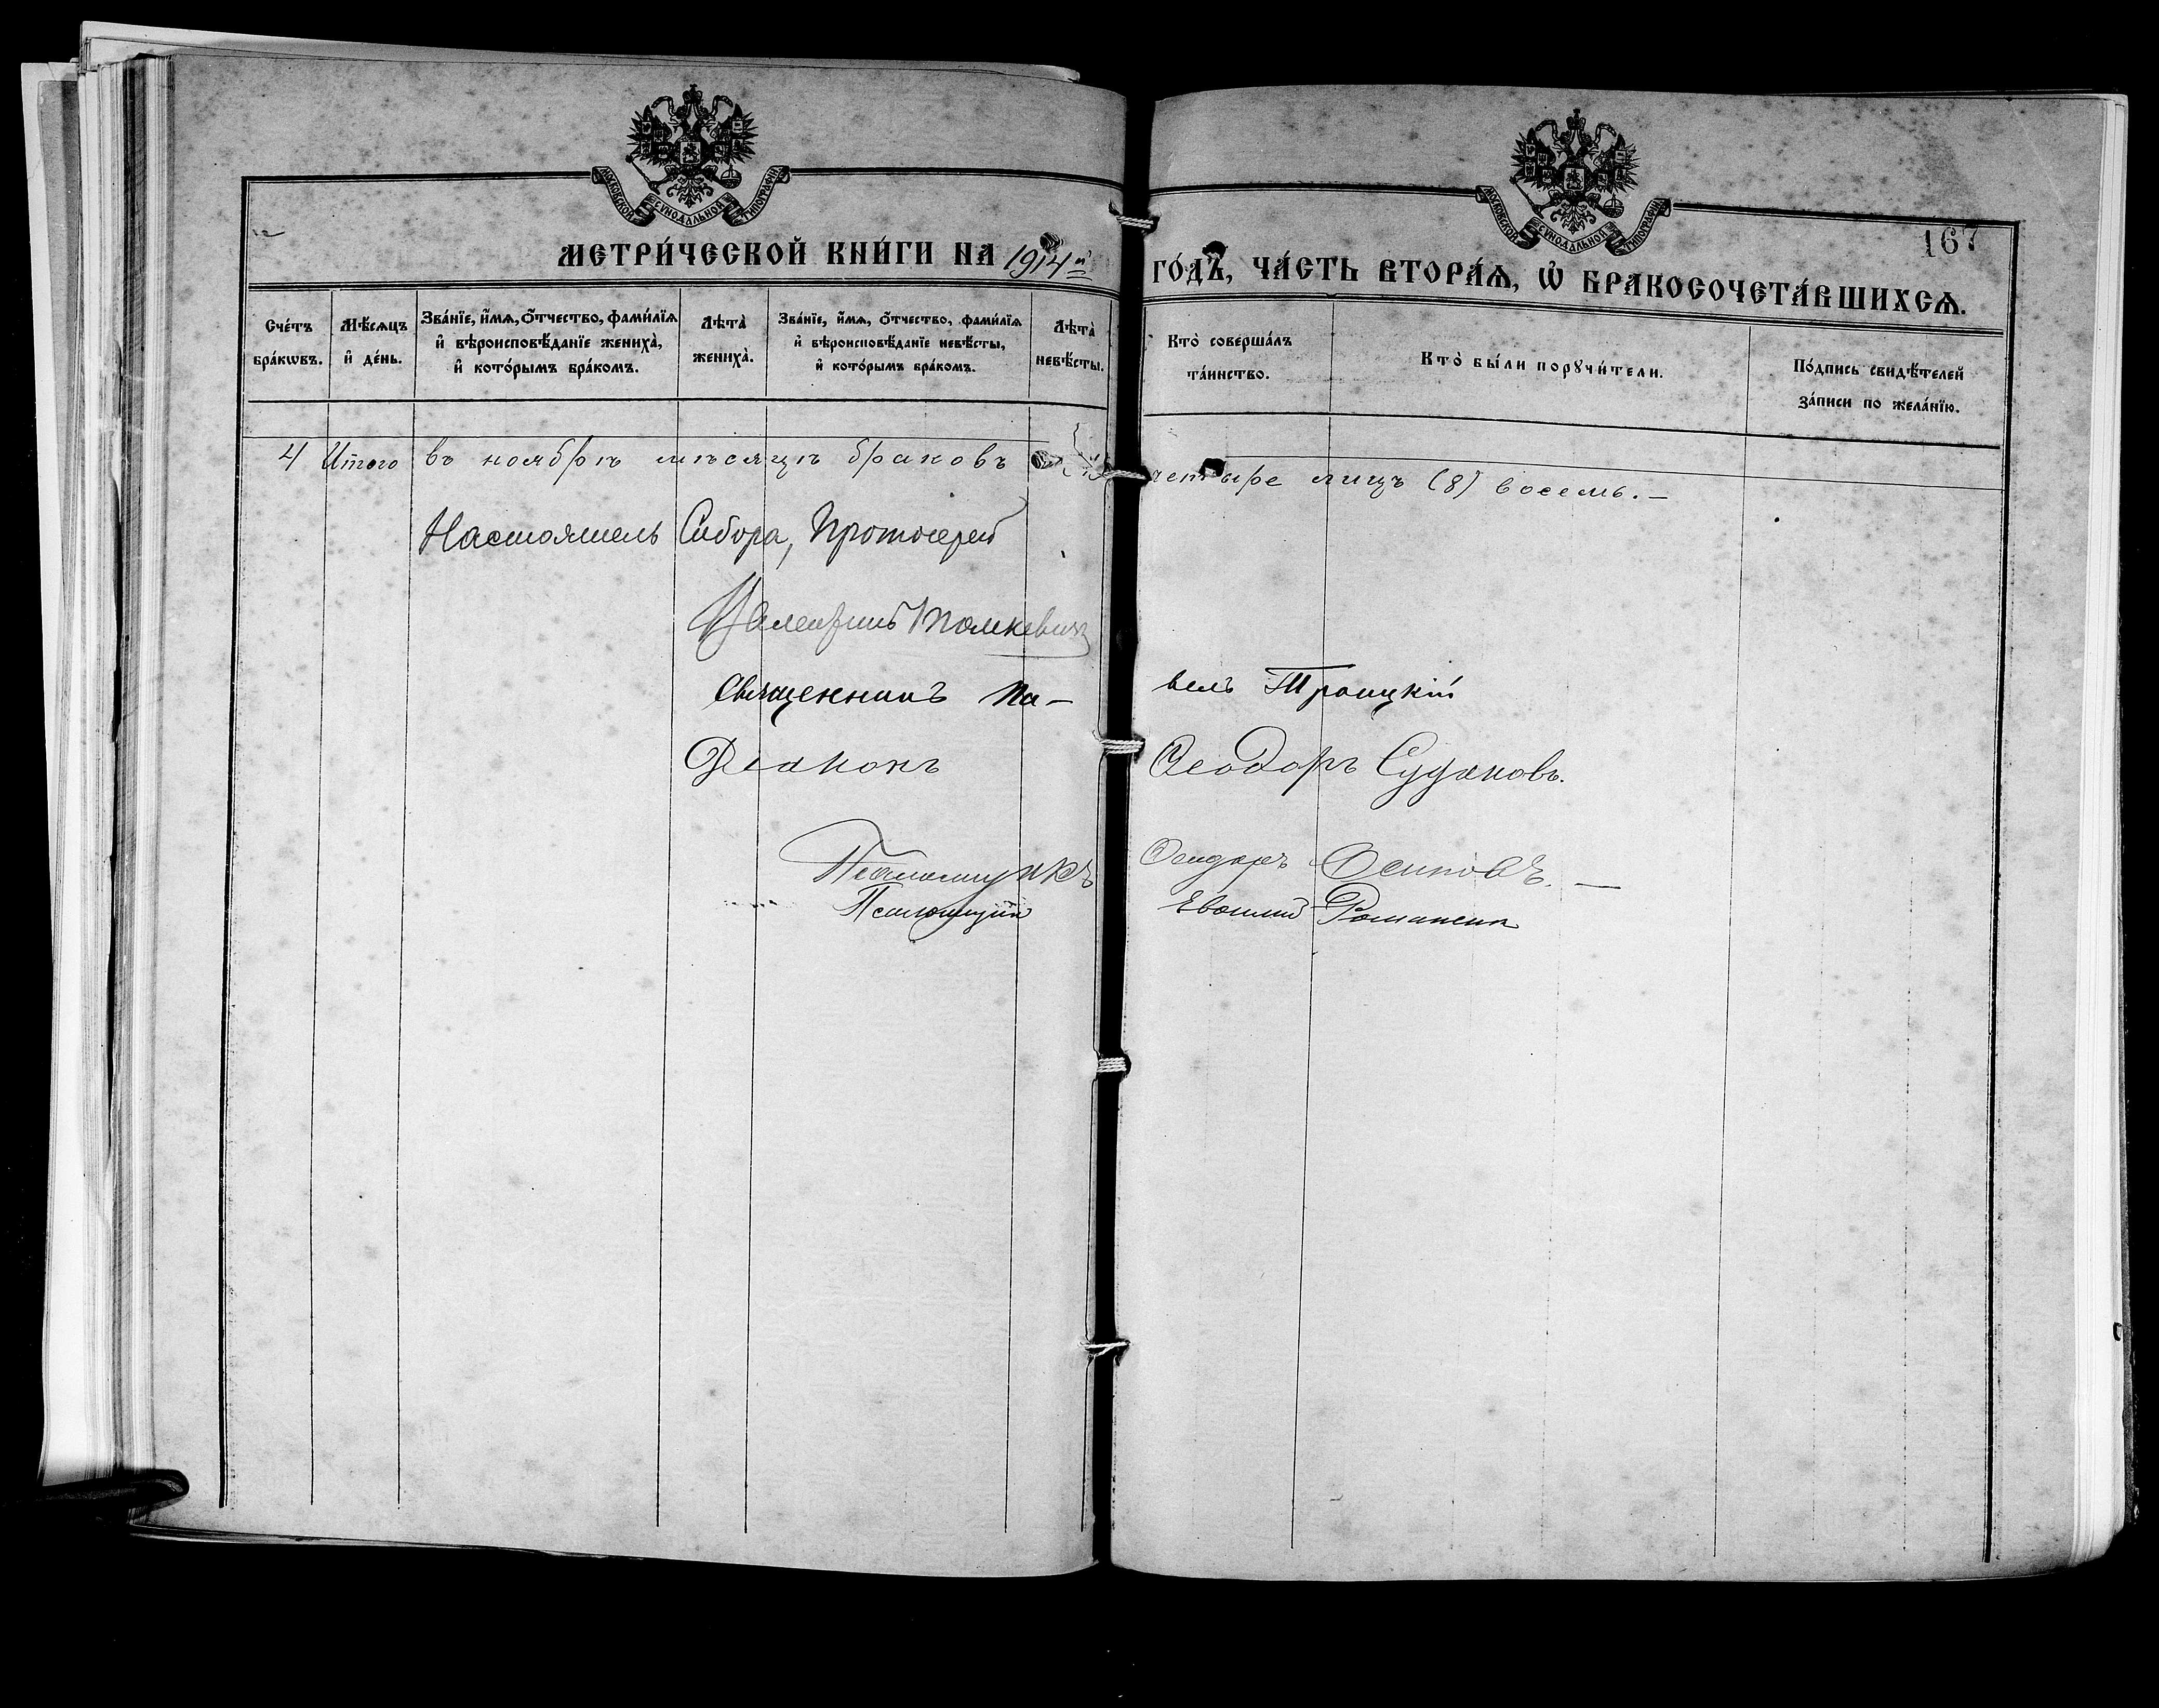 МОСКОВСКОЙ СѴНОДАЛЬНОЙ ТИПОГРАФІИ
МОСКОВСКОЙ СѴНОДАЛЬНОЙ ТИПОГРАФІИ
167
МЕТРИ́ЧЕСКОЙ КНИ́ГИ НА 1914й ГО́ДЪ, ЧА́СТЬ ВТОРА́Ѧ, Ѡ҆ БРАКОСОЧЕТА́ВШИХСѦ.
Сче́тъ бра́кѡвъ.
Мѣ́сѧцъ и҆ де́нь.
Зва́нїе, и҆́мѧ, о҆́тчество, фами́лїѧ и҆ вѣроисповѣ́данїе жениха̀, и҆ кото́рымъ бра́комъ.
Лѣта̀ жениха̀.
Зва́нїе, и҆́мѧ, о҆́тчество, фами́лїѧ и҆ вѣроисповѣ́данїе невѣ́сты, и҆ кото́рымъ бра́комъ.
Лѣта̀ невѣ́сты.
Кто̀ соверша́лъ та́инство.
Кто̀ бы́ли порꙋчи́тели.
По́дпись свидѣ́телей за́писи по жела́нїю.
4 Итого въ ноябрѣ мѣсяцѣ браковъ четыре лицъ (8) восемь. —
Настоятель Собора, Протоіерей
Валентинъ
Священникъ Павелъ Троицкій
Діаконъ Ѳеодоръ Судаковъ.
Псаломщикъ Осиповъ. —
Псаломщикъ